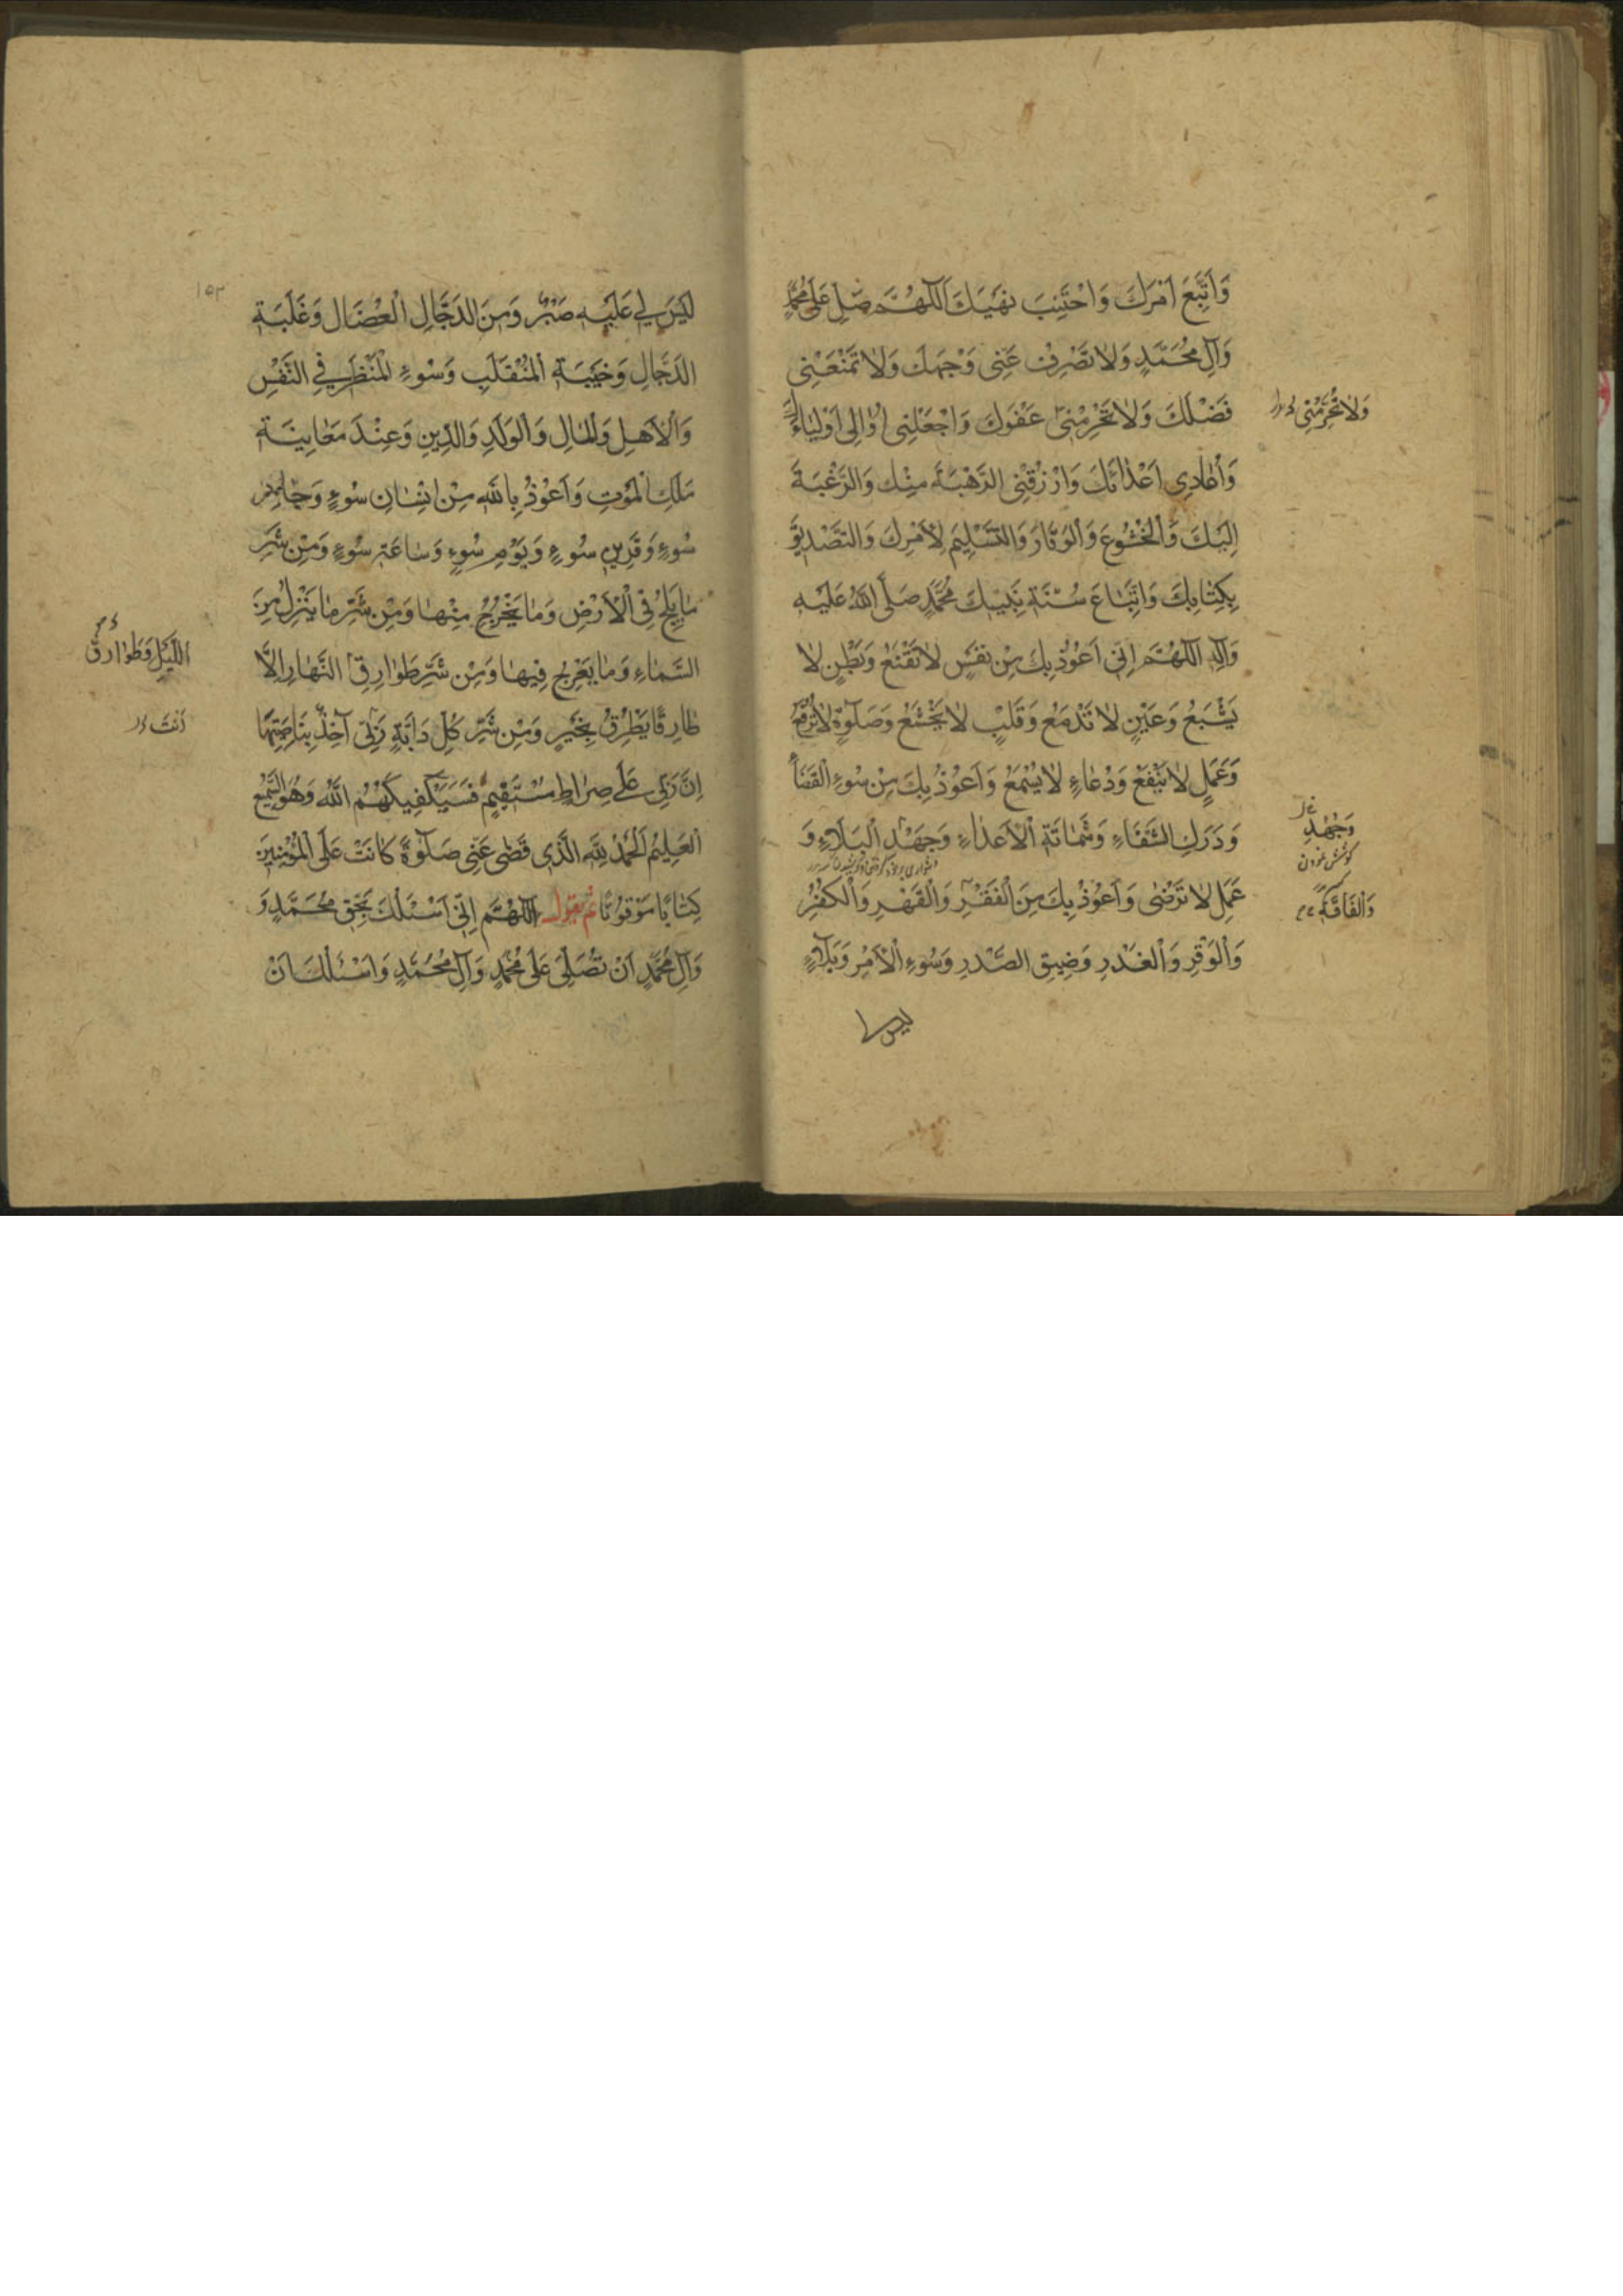 وَاَتَّبِعَ اَمْرَكَ وَاَجْتَنِبَ نَهْيَكَ اَللّٰهُمَّ صَلِّ عَلٰى مُحَمَّدٍ
وَآلِ مُحَمَّدٍ وَلاٰ تَصْرِفْ عَنِّى وَجْهَكَ وَلاٰ تَمْنَعْنِى
فَضْلَكَ وَلاٰ تَحْرِمْنِى عَفْوَكَ وَاجْعَلْنِى اُوٰالِى اَوْلِيٰاءَكَ
وَلاٰ تَحْرِمْنِى
وَاُعٰادِى اَعْدٰائَكَ وَارْزُقْنِى الرَّهْبَةَ مِنْكَ وَالرَّغْبَةَ
اِلَيْكَ وَالْخُشُوعَ وَالْوَقٰارَ وَالتَّسْلِيمَ لِاَمْرِكَ وَالتَّصْدِيقَ
بِكِتٰابِكَ وَاتِّبٰاعَ سُنَّةِ نَبِيِّكَ مُحَمَّدٍ صَلَّى اللّٰهُ عَلَيْهِ
وَآلِهِ اَللّٰهُمَّ اِنِّى اَعُوْذُ بِكَ مِنْ نَفْسٍ لاٰ تَقْنَعُ وَبَطْنٍ لاٰ
يَشْبَعُ وَعَيْنٍ لاٰ تَدْمَعُ وَقَلْبٍ لاٰ يَخْشَعُ وَصَلٰوةٍ لاٰ تُرْفَعُ
وَعَمَلٍ لاٰ يَنْفَعُ وَدُعٰاءٍ لاٰ يُسْمَعُ وَاَعُوْذُ بِكَ مِنْ سُوءِ الْقَضٰاءِ
وَدَرَكِ الشَّقٰاءِ وَشَمٰاتَةِ الْاَعْدٰاءِ وَجَهْدِ الْبَلَاءِ وَ
وَجُهْدِ
كوشش نمودن
عَمَلٍ لاٰ تَرْضٰى وَاَعُوْذُ بِكَ مِنَ الْفَقْرِ وَالْقَهْرِ وَالْكُفْرِ
وَالْفَاقَةِ
وَالْوَقْرِ وَالْغَدْرِ وَضِيقِ الصَّدْرِ وَسُوءِ الْاَمْرِ وَبَلَاءٍ
ليس
١٥٢
لَيْسَ لِي عَلَيْهِ صَبْرٌ وَمِنَ الدَّجَّالِ الْعُضَالِ وَغَلَبَةِ
الدَّجَّالِ وَخَيْبَةِ الْمُنْقَلَبِ وَسُوءِ الْمَنْظَرِ فِي النَّفْسِ
وَالْاَهْلِ وَالْمٰالِ وَالْوَلَدِ وَالدِّينِ وَعِنْدَ مَعٰايِنَةِ
مَلَكِ الْمَوْتِ وَاَعُوْذُ بِاللّٰهِ مِنْ اِنْسٰانِ سُوءٍ وَجٰارِ
سُوءٍ وَقَرِينِ سُوءٍ وَيَوْمِ سُوءٍ وَسٰاعَةِ سُوءٍ وَمِنْ شَرِّ
مٰا يَلِجُ فِى الْاَرْضِ وَمٰا يَخْرُجُ مِنْهٰا وَمِنْ شَرِّ مٰا يَنْزِلُ مِنَ
السَّمٰاءِ وَمٰا يَعْرُجُ فِيهٰا وَمِنْ شَرِّ طَوٰارِقِ النَّهٰارِ اِلَّا
اللَّيْلِ وَطَوٰارِقِ
طٰارِقًا يَطْرُقُ بِخَيْرٍ وَمِنْ شَرِّ كُلِّ دَابَّةٍ رَبِّى آخِذٌ بِنٰاصِيَتِهٰا
اَنْتَ
اِنَّ رَبِّى عَلٰى صِرٰاطٍ مُسْتَقِيمٍ فَسَيَكْفِيكَهُمُ اللّٰهُ وَهُوَ السَّمِيعُ
الْعَلِيمُ اَلْحَمْدُ لِلّٰهِ الَّذِى قَضٰى عَنِّى صَلٰوةً كٰانَتْ عَلَى الْمُؤْمِنِينَ
كِتٰابًا مَوْقُوتًا ثُمَّ يَقُولُ اَللّٰهُمَّ اِنِّى اَسْئَلُكَ بِحَقِّ مُحَمَّدٍ وَ
وَآلِ مُحَمَّدٍ اَنْ تُصَلِّىَ عَلٰى مُحَمَّدٍ وَآلِ مُحَمَّدٍ وَاَسْئَلُكَ اَنْ